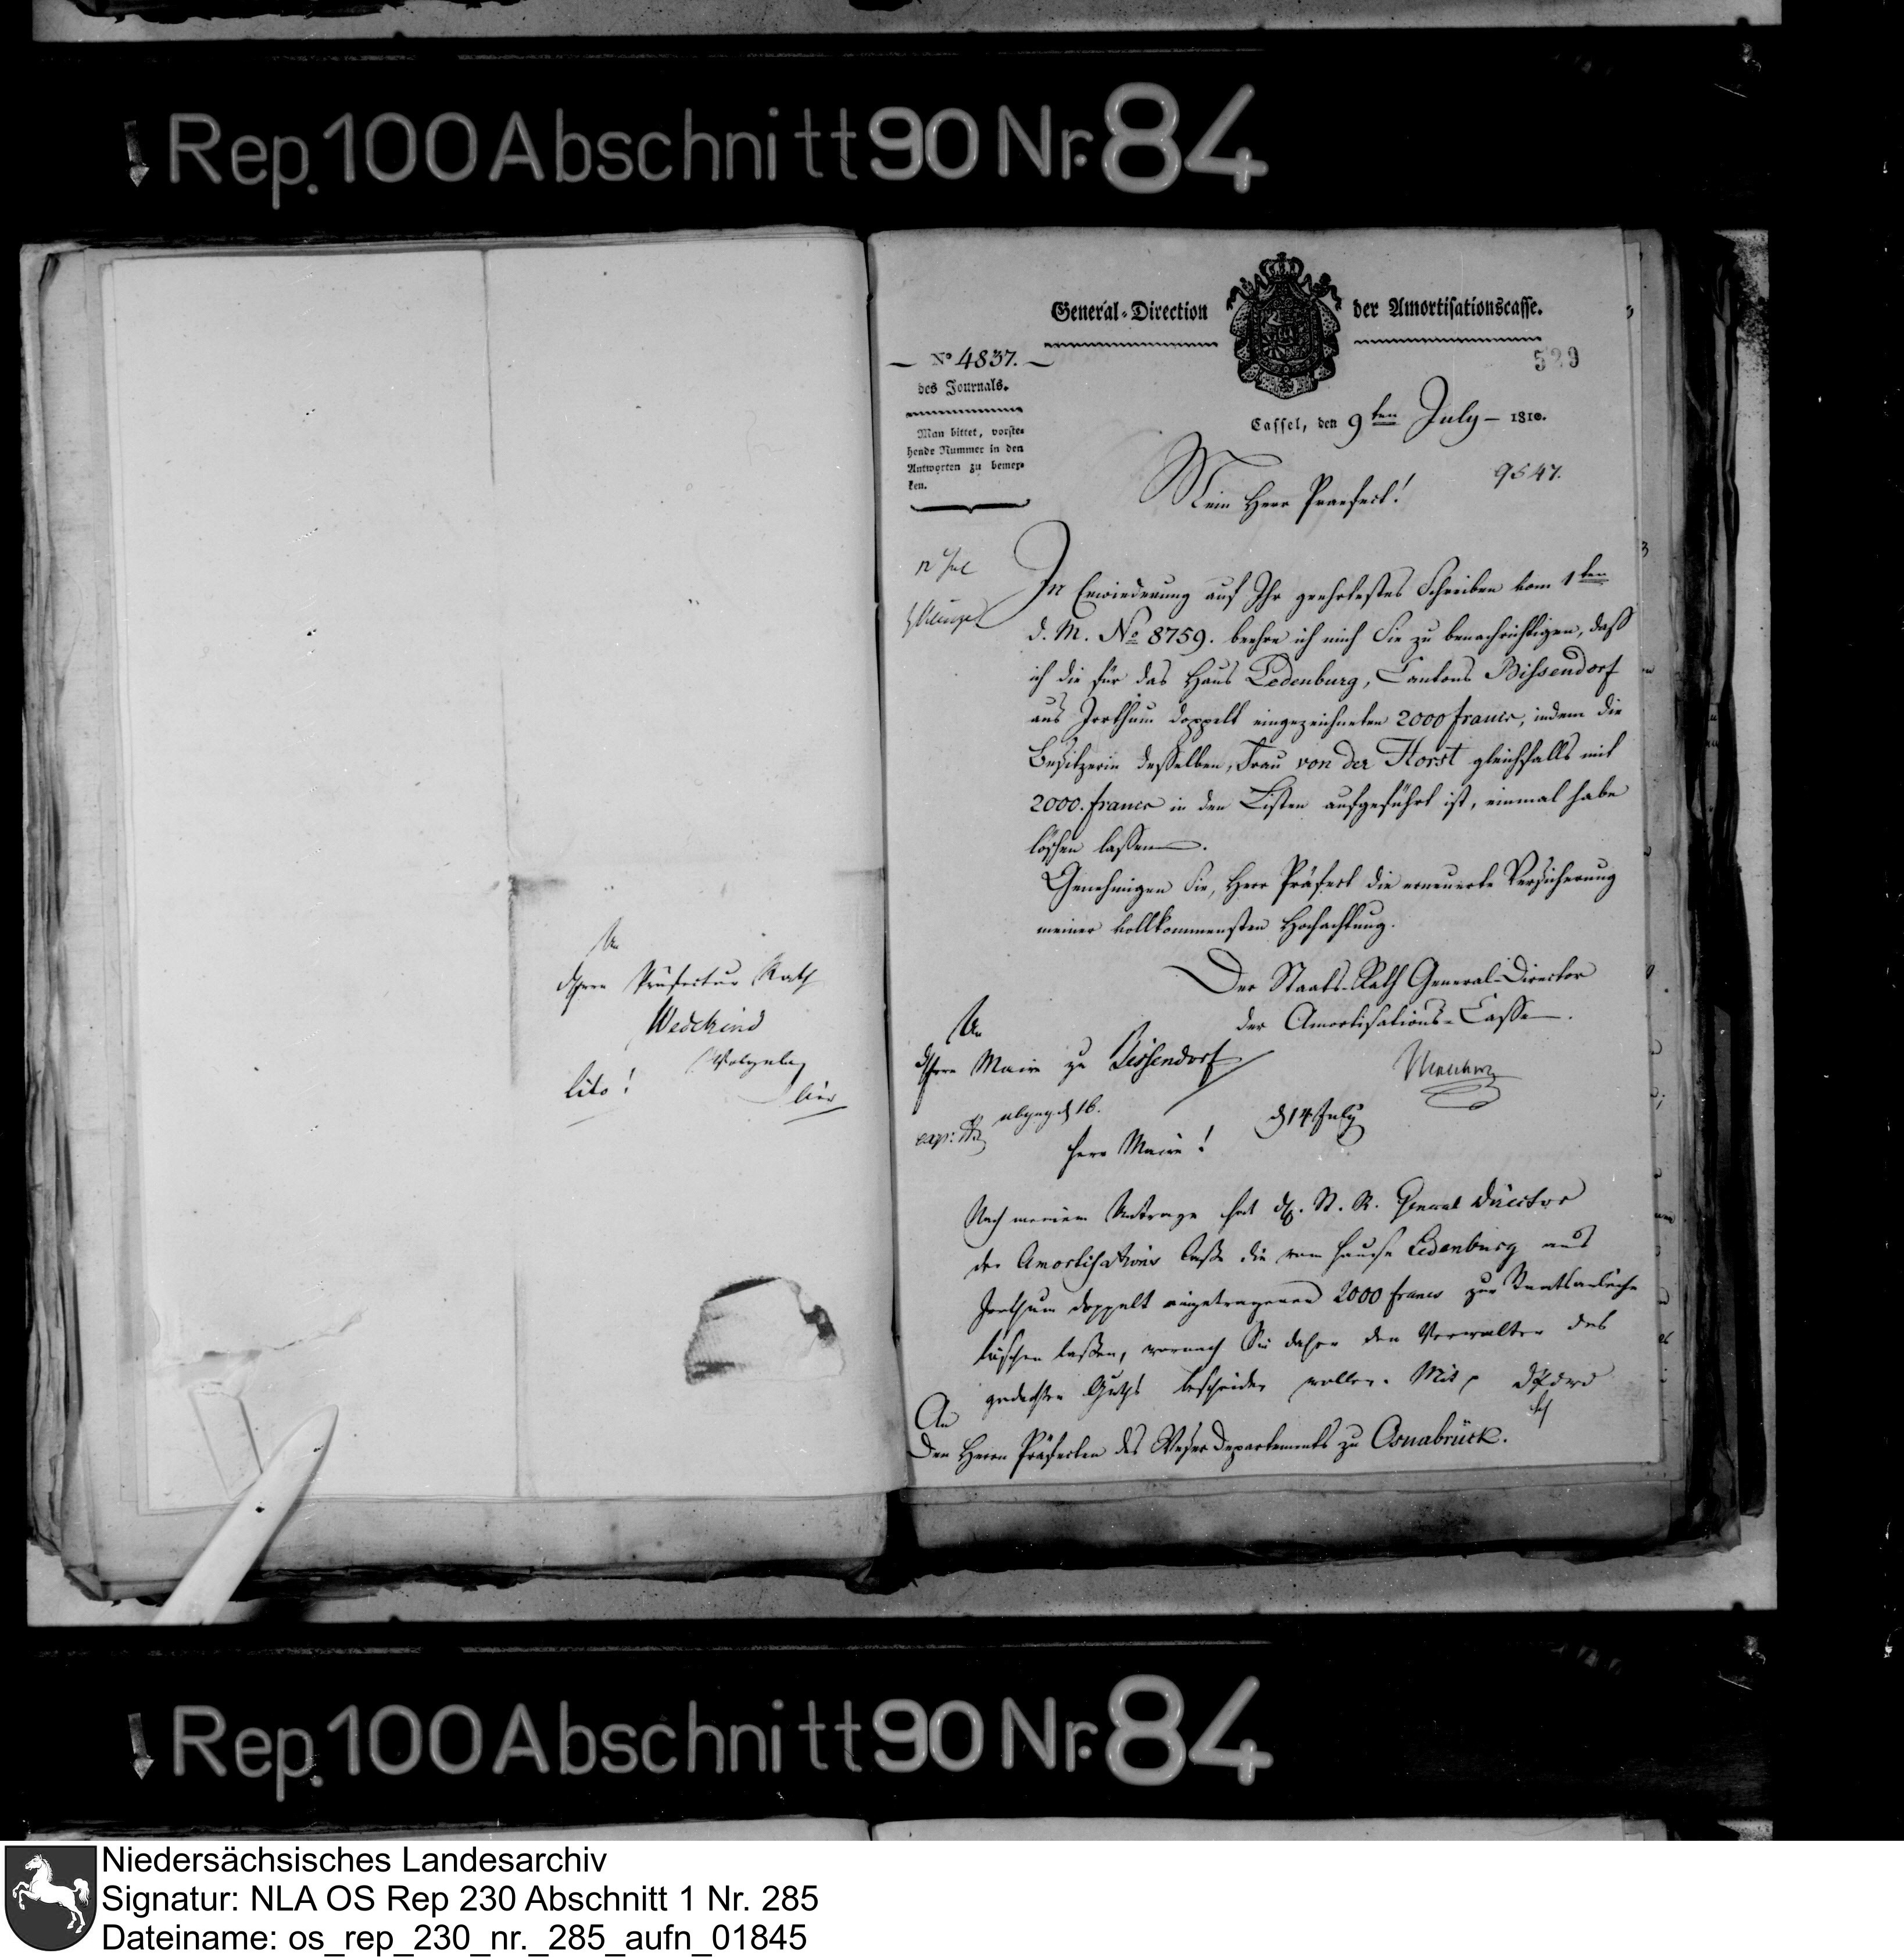 Rep. 100 Abschnitt 90 Nr. 84
An
Herrn Präfectur Rath
Wedekind
Wolgeb.
cito!
hier
General-Direction der Amortisationscasse.
N° 4837.
des Journals.
Man bittet, vorste-
hende Nummer in den
Antworten zu bemer-
ken.
529
Cassel, den 9ten July 1810.
9547.
Mein Herr Praefect!
In Erwiederung auf Ihr geehrtestes Schreiben vom 1ten
d. M. No 8759. beehre ich mich Sie zu benachrichtigen, daß
ich die für das Haus Ledenburg, Cantons Bissendorf
aus Irrthum doppelt eingezeichneten 2000 francs, indem die
Besitzerin desselben, Frau von der Horst gleichfalls mit
2000. francs in den Listen aufgeführt ist, einmal habe
löschen lassen.
Genehmigen Sie, Herr Präfect die erneuerte Versicherung
meiner vollkommensten Hochachtung.
Der Staats-Rath General-Director
der Amortisations-Casse.
An
Herrn Maire zu Bissendorf
abgeg. d 16.
d 14 July
Herr Maire!
Nach meinem Antrage hat H. St. R. General Director
der Amortisations Casse die vom Hause Ledenburg aus
Irrthum doppelt eingetragenen 2000 francs zur Reichsanleihe
löschen laßen, wornach Sie daher den Verwalter des
gedachten Guths bescheiden wollen. Mit
An
Den Herrn Präfecten des Weser Departements zu Osnabrück.
Rep. 100 Abschnitt 90 Nr. 84
Niedersächsisches Landesarchiv
Signatur: NLA OS Rep 230 Abschnitt 1 Nr. 285
Dateiname: os_rep_230_nr._285_aufn_01845